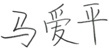 马爱平